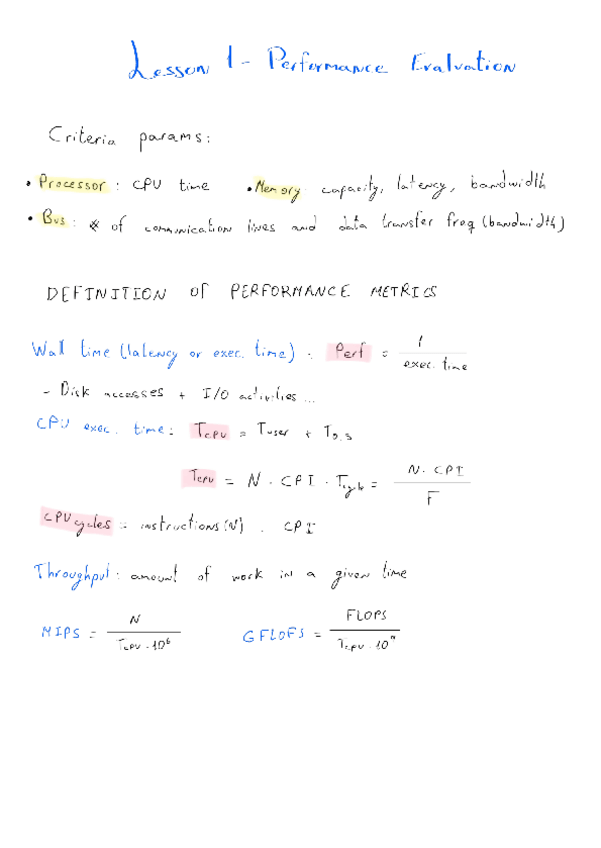 Lesson 1 - Performance Evaluation
Criteria params:
• Processor: CPU time • Memory capacity, latency, bandwidth
• Bus: # of communication lines and data transfer freq (bandwidth)
DEFINITION OF PERFORMANCE METRICS
Wall time (latency or exec. time): Perf = 1 / exec. time
- Disk accesses + I/O activities...
CPU exec. time: Tcpu = Tuser + To.s
Tcpu = N · CPI · Tcycle = N · CPI / F
CPU cycles = instructions (N) · CPI
Throughput: amount of work in a given time
MIPS = N / Tcpu · 10⁶ GFLOPS = FLOPS / Tcpu · 10⁹